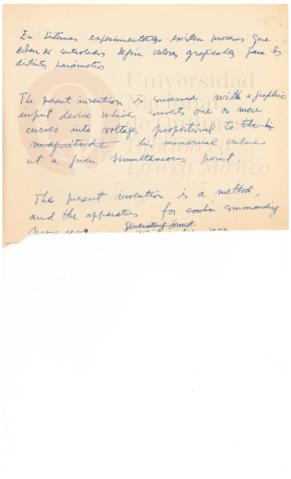 En sistemas experimentales existen procesos que
deben ser controlados según valores graficados para los
distintos parámetros
The present invention is concerned with a graphic
input device which converts one or more
curves into voltages proportional to the
magnitude numerical value
at a given simultaneous point.
The present invention is a method,
and the apparatus for commanding
generating
Universidad